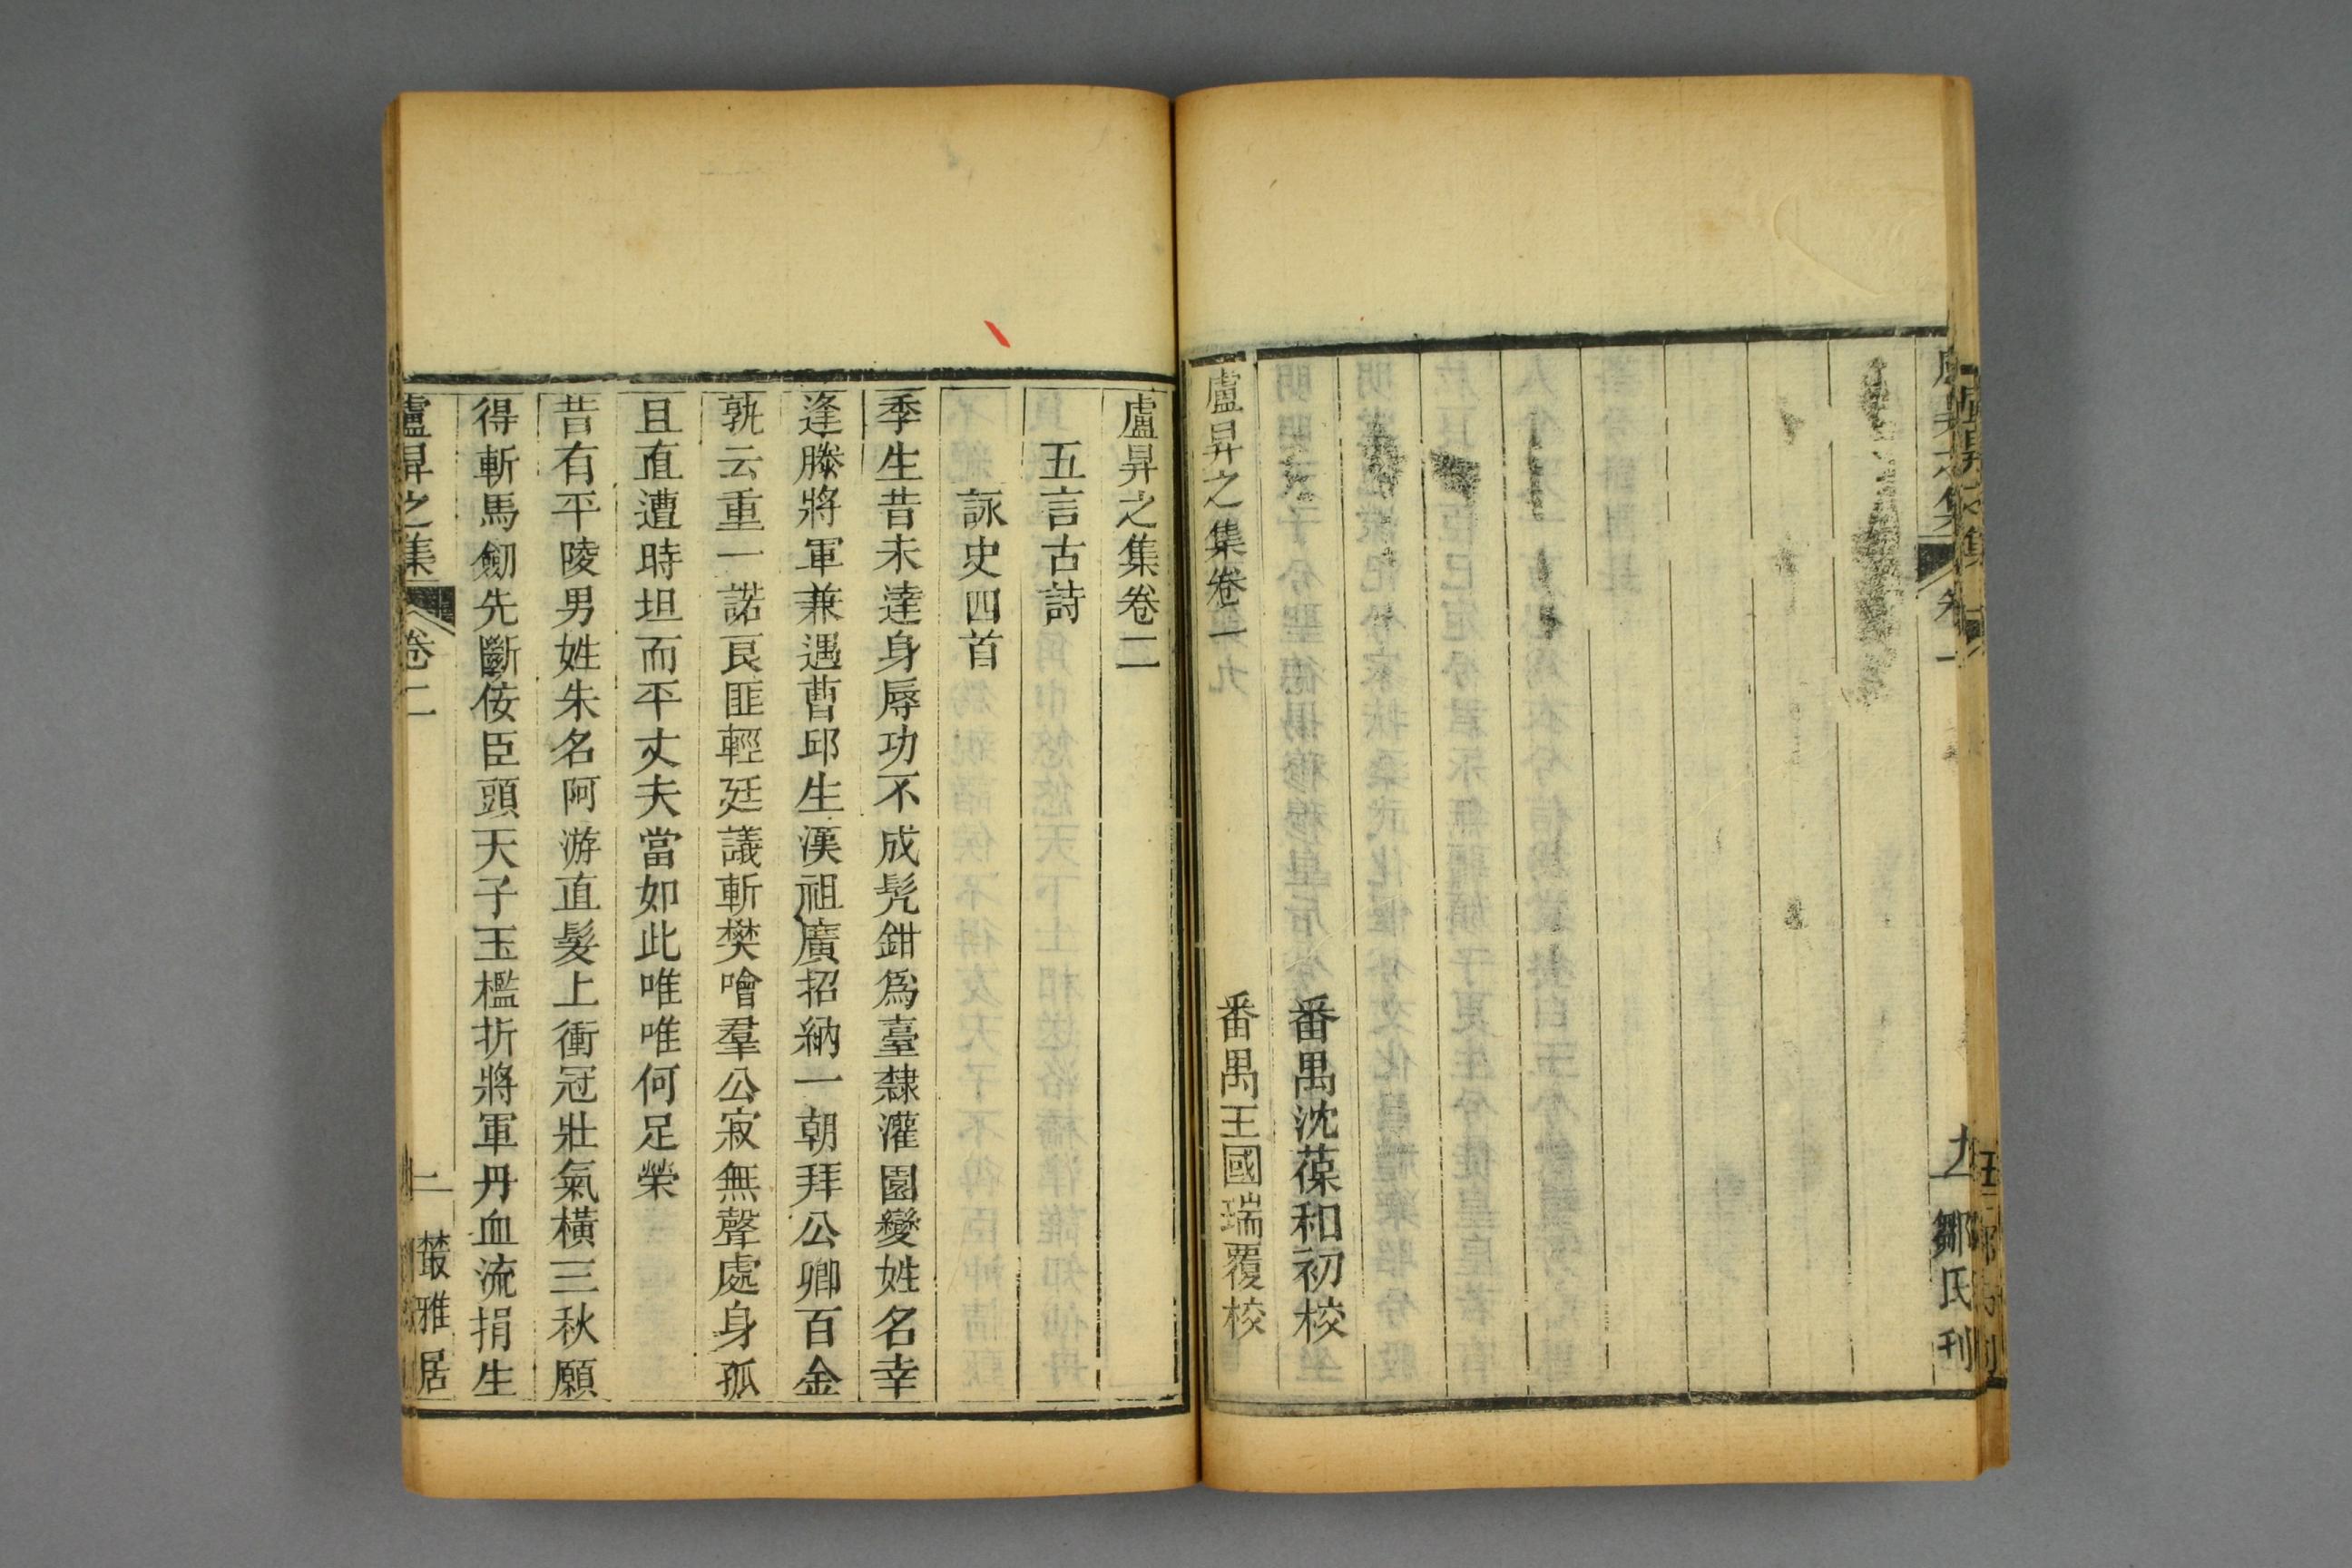 番禺沈葆和初校
盧昇之集卷一
番禺王國瑞覆校
九
鄒氏刊
盧昇之集卷二
五言古詩
詠史四首
季生昔未達身辱功不成髡鉗爲臺隸灌園變姓名幸
逢滕將軍兼遇曹邱生漢祖廣招納一朝拜公卿百金
孰云重一諾良匪輕廷議斬樊噲羣公寂無聲處身孤
且直遭時坦而平丈夫當如此唯唯何足榮
昔有平陵男姓朱名阿游直髮上衝冠壯氣橫三秋願
得斬馬劒先斷佞臣頭天子玉檻折將軍丹血流捐生
盧昇之集
卷二
一
叢雅居